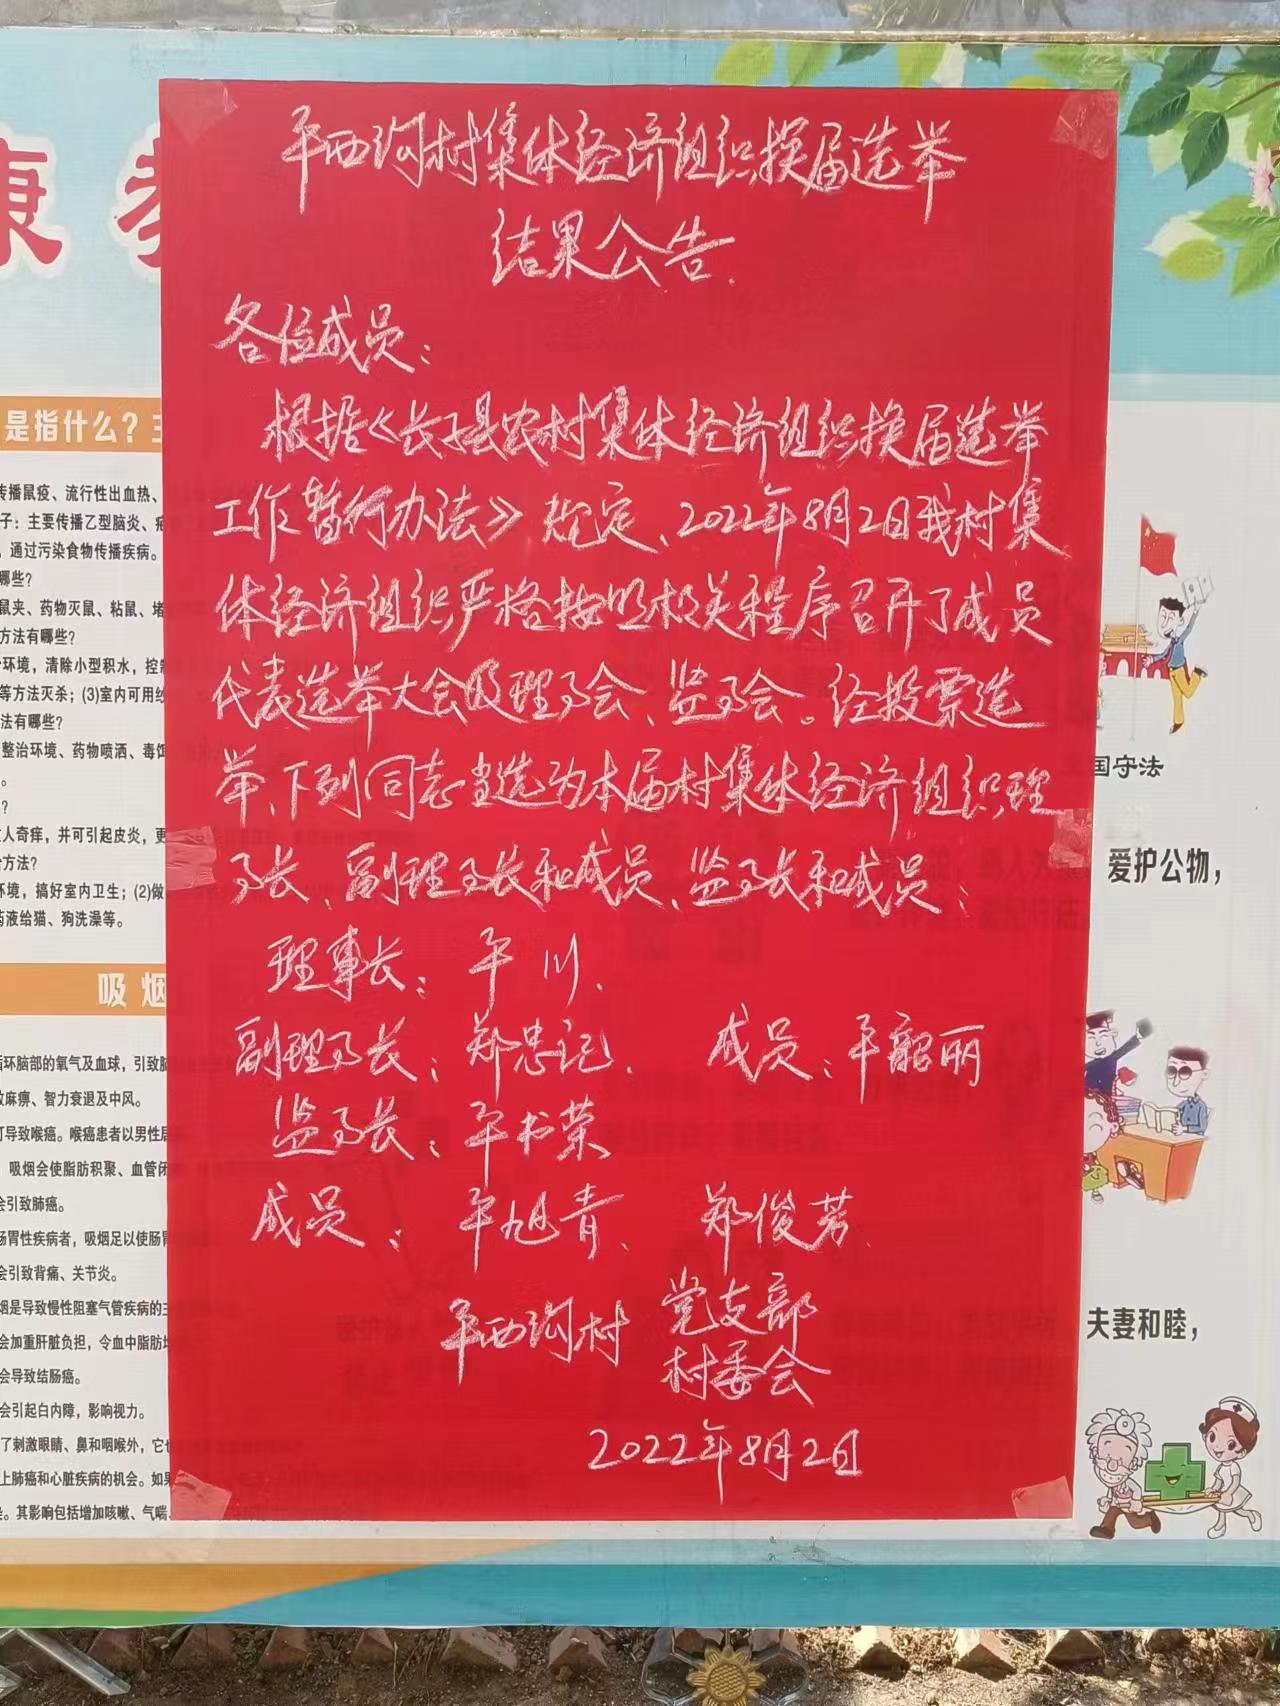 平西沟村集体经济组织换届选举
结果公告.
各位成员:
根据《长子县农村集体经济组织换届选举
工作暂行办法》规定、2022年8月2日我村集
体经济组织严格按照相关程序召开了成员
代表选举大会及理事会、监事会。经投票选
举、下列同志当选为本届村集体经济组织理
事长、副理事长和成员、监事长和成员:
理事长: 平川.
副理事长: 郑忠记. 成员: 平韶丽
监事长: 平书荣
成员: 平旭青. 郑俊芳.
平西沟村 党支部
村委会
2022年8月2日
康
是指什么?
传播鼠疫、流行性出血热、
子: 主要传播乙型脑炎、
通过污染食物传播疾病。
哪些?
鼠夹、药物灭鼠、粘鼠、
方法有哪些?
环境, 清除小型积水, 控
等方法灭杀; (3)室内可用
法有哪些?
整治环境、药物喷洒、毒饵
?
人奇痒, 并可引起皮炎, 更
方法?
环境, 搞好室内卫生; (2)做
药液给猫、狗洗澡等。
吸烟
循环脑部的氧气及血球, 引致脑
致麻痹、智力衰退及中风。
可导致喉癌。喉癌患者以男性居
吸烟会使脂肪积聚、血管闭
会引致肺癌。
肠胃性疾病者, 吸烟足以使肠胃
会引致背痛、关节炎。
烟是导致慢性阻塞气管疾病的主
会加重肝脏负担, 令血中脂肪
会导致结肠癌。
会引起白内障, 影响视力。
了刺激眼睛、鼻和咽喉外, 它
上肺癌和心脏疾病的机会。如果
其影响包括增加咳嗽、气喘、
国守法
爱护公物,
夫妻和睦,